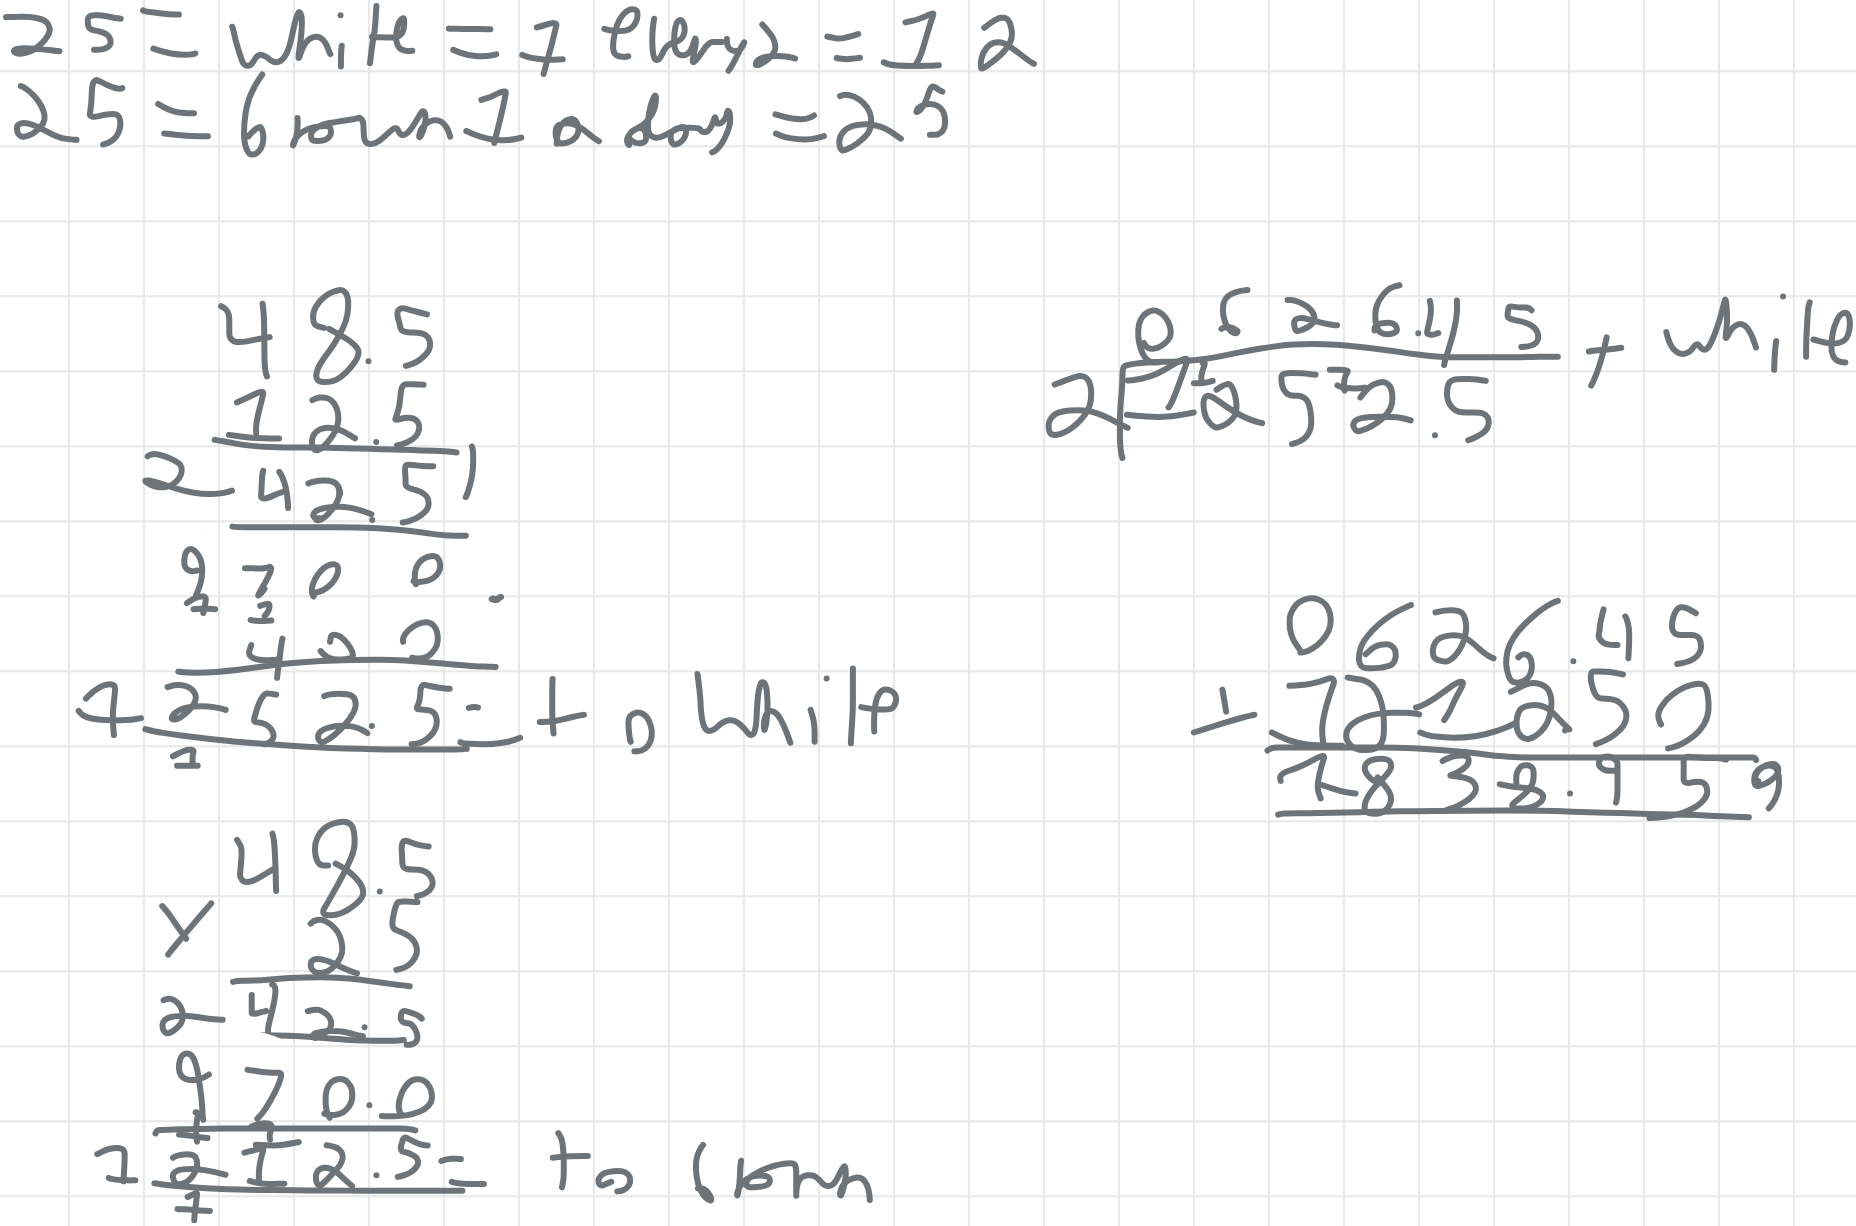 25 = white = 1 every 2 = 12
25 = brown 1 a day = 25
48.5
12.5
242.5
9700.
400
1252.5 = to white
1
48.5
x 25
242.5
970.0
1212.5 = to brown
1
0626.45 + white
2 1252.5
0626.45
+ 1212.50
1838.95